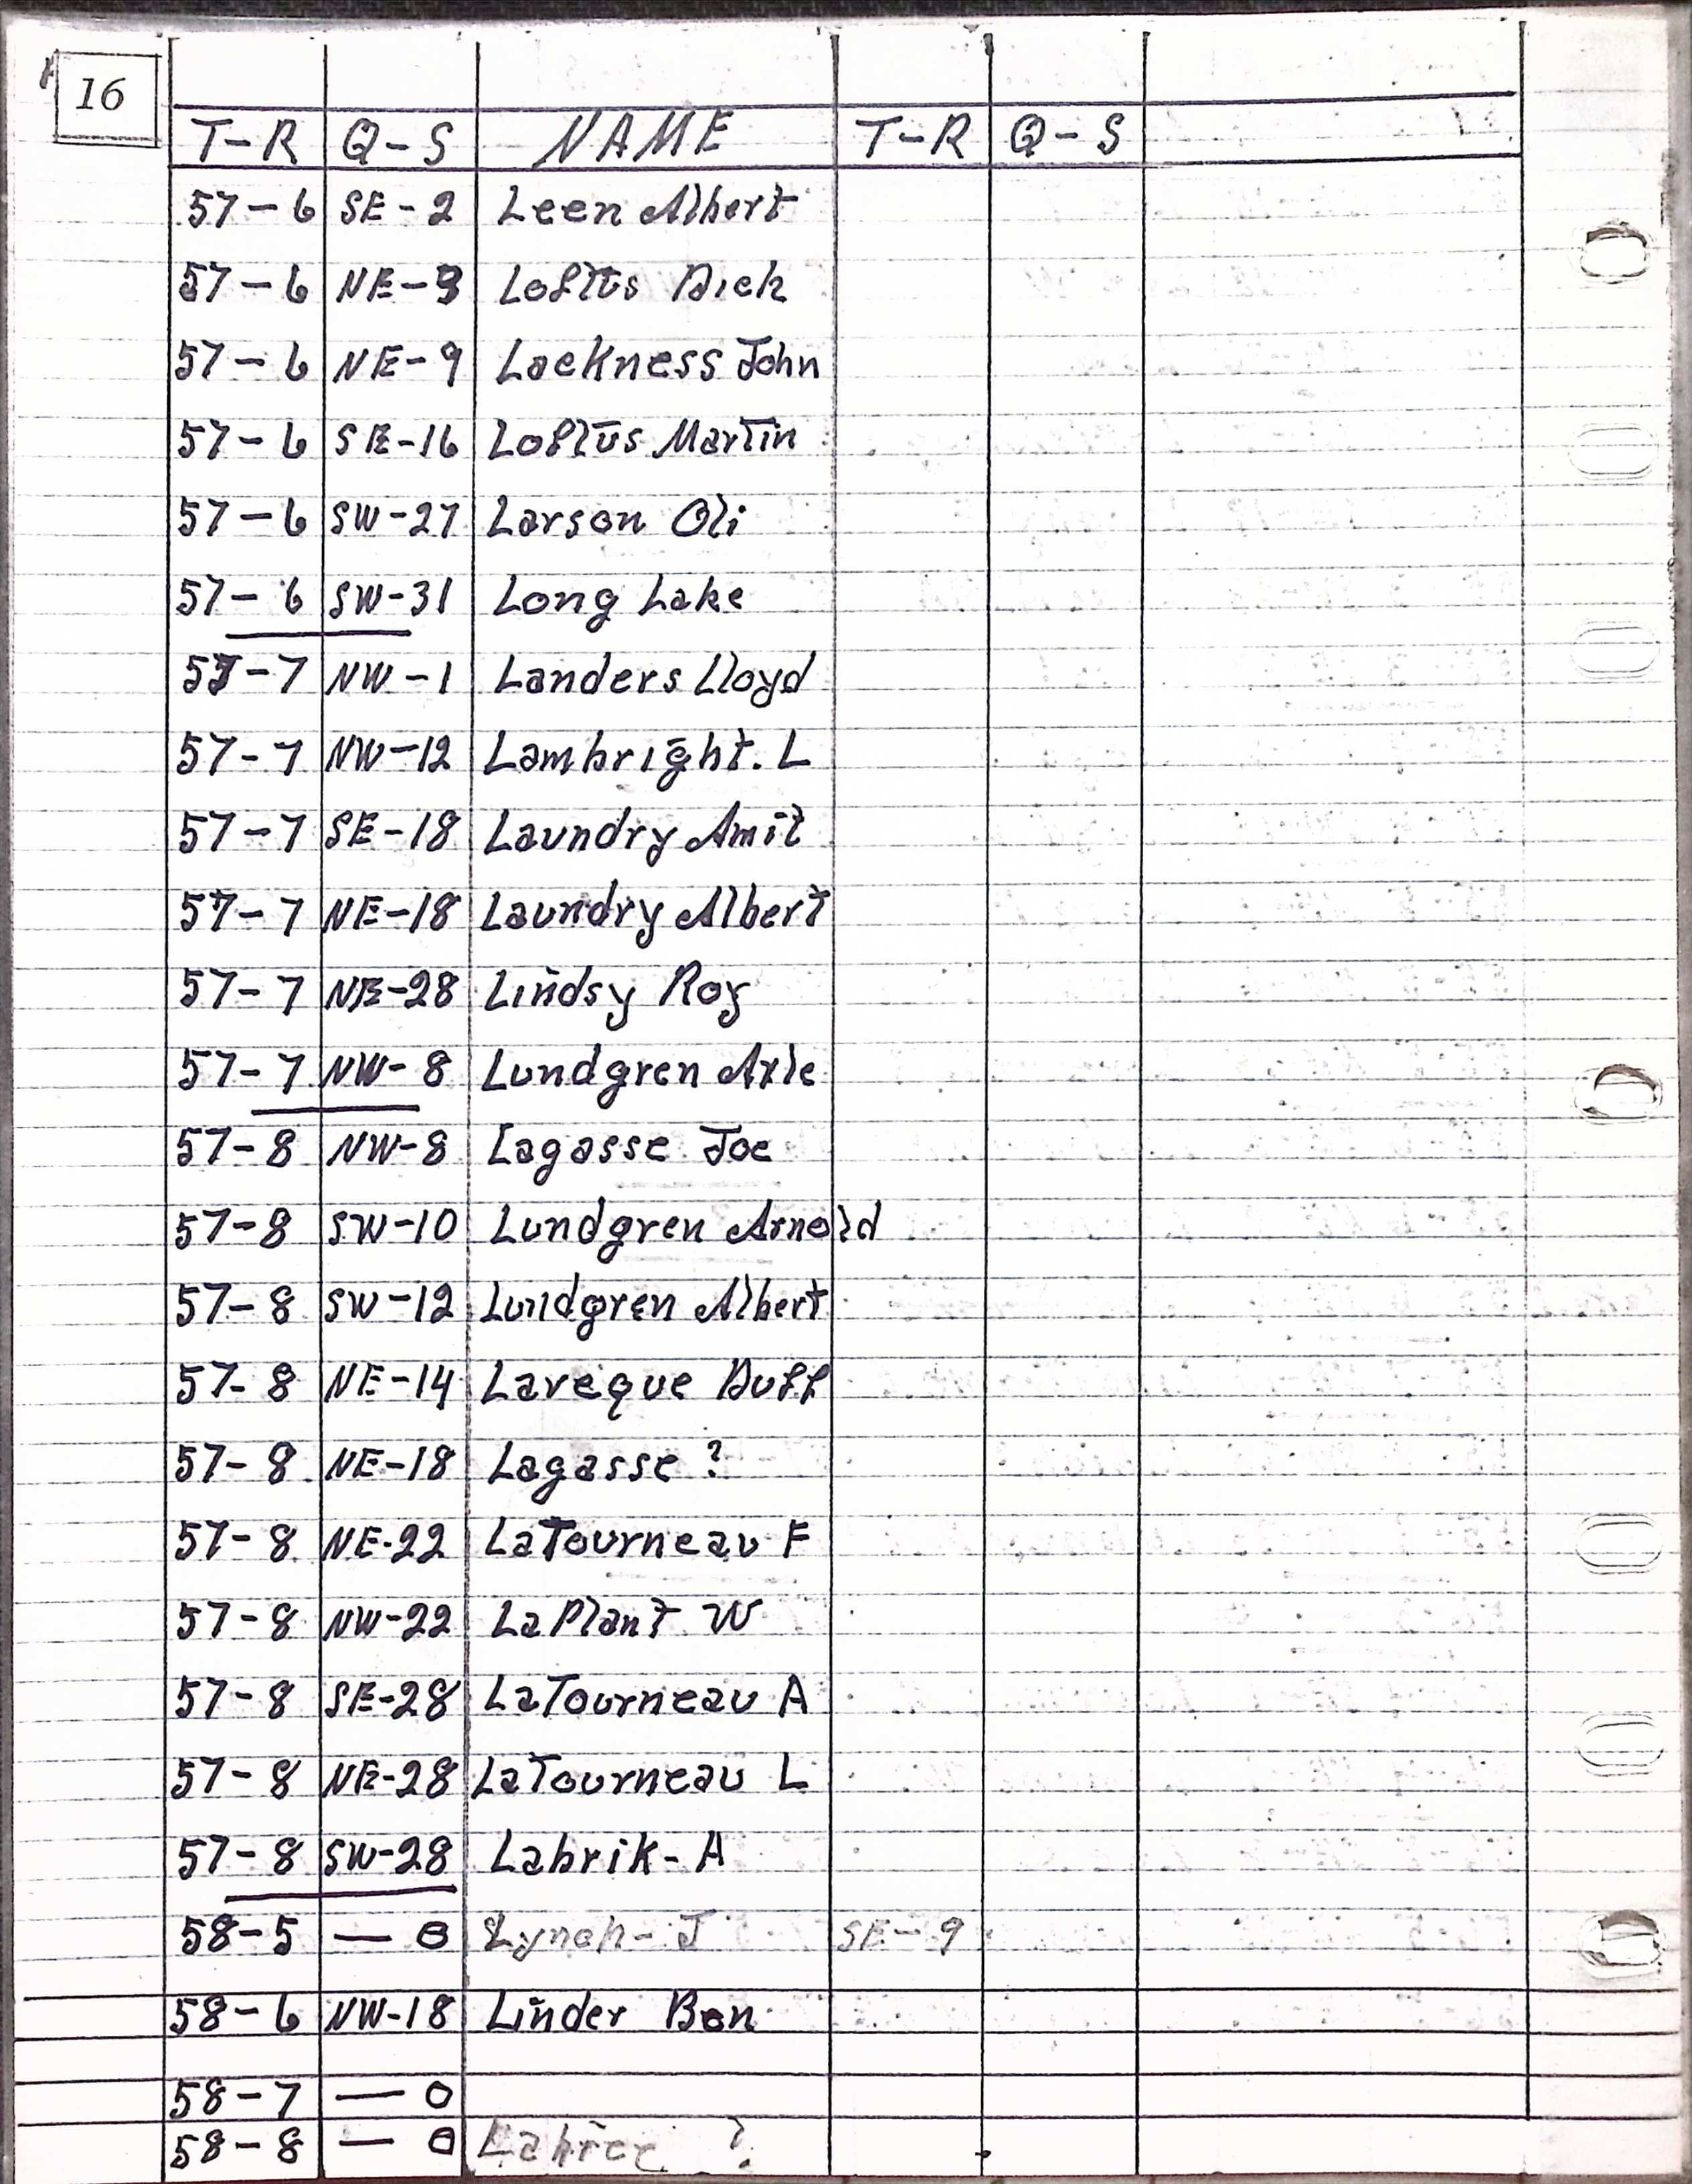 16
T-R Q-S NAME T-R Q-S
57-6 SE-2 Leen Albert
57-6 NE-9 Loftus Dick
57-6 NE-9 Lackness John
57-6 SE-16 Loftus Martin
57-6 SW-27 Larson Oli
57-6 SW-31 Long Lake
57-7 NW-1 Landers Lloyd
57-7 NW-12 Lambright. L
57-7 SE-18 Laundry Amit
57-7 NE-18 Laundry Albert
57-7 NE-28 Lindsy Roy
57-7 NW-8 Lundgren Axle
57-8 NW-8 Lagasse Joe
57-8 SW-10 Lundgren Arnold
57-8 SW-12 Lundgren Albert
57-8 NE-14 Laveque Duff
57-8 NE-18 Lagasse ?
57-8 NE-22 LaTourneau F
57-8 NW-22 LaPlant W
57-8 SE-28 LaTourneau A
57-8 NE-28 LaTourneau L
57-8 SW-28 Labrik-A
58-5 — 0 Lynch-J SE-9
58-6 NW-18 Linder Ben
58-7 — 0
58-8 — 0 ?